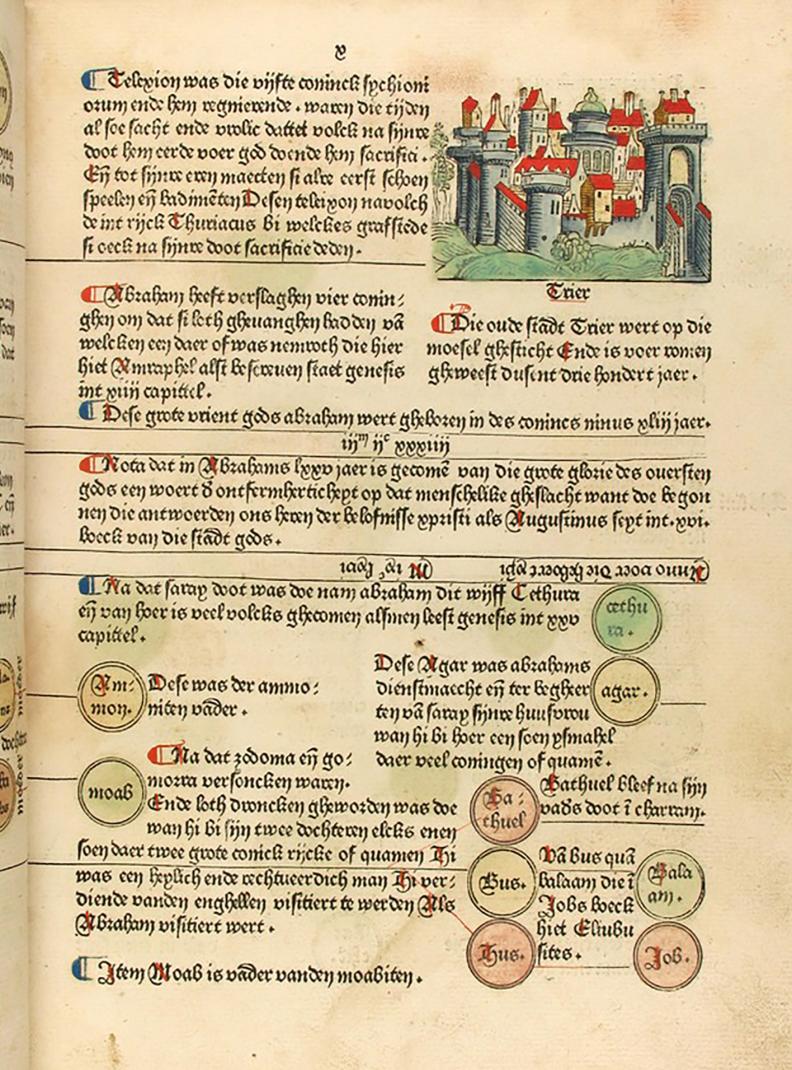 x
Telexion was die vijfte coninck sychioni
orum ende hem regnierende. waren die tijden
al soe sacht ende vrolic dattet volck na sijnre
doot hem eerde voer god doende hem sacrifici.
Eñ tot sijnre eren maecten si alre eerst schoen
speelen eñ badimẽten Desen telexion navolch
de int rijck Thuriacus bi welckes graffstede
si oeck na sijnre doot sacrificie deden.
Trier
Abraham heeft verslaghen vier conin-
ghen om dat si loth ghevanghen hadden vã
welcken een daer of was nemroth die hier
hiet Amraphel alst bescreven staet genesis
int xiiii capittel.
Die oude stadt Trier wert op die
moesel ghesticht Ende is voer romen
gheweest dusent drie hondert jaer.
Dese grote vrient gods abraham wert gheboren in des conincs ninus xliij jaer.
iijᵐ ijᶜ xxxiiij
Nota dat in Abrahams lxxv jaer is gecomẽ van die grote glorie des oversten
gods een woert d' ontfermherticheyt op dat menschelike gheslacht want doe begon
nen die antwoerden ons heren der belofnisse xpristi als Augustinus seyt int.xvi.
boeck van die stadt gods.
Anno voer die geboert xpi
Na dat saray doot was doe nam abraham dit wijff Cethura
eñ van hoer is veel volcks ghecomen alsmen leest genesis int xxv
capittel.
cethu
ra.
Am-
mon.
Dese was der ammo-
niten vãder.
Dese Agar was abrahams
dienstmaecht eñ ter begheer
ten vã saray sijnre huusvrou
wan hi bi hoer een soen ysmahel
daer veel coningen of quamẽ.
agar.
moab
Na dat zodoma eñ go-
morra versoncken waren.
Ende loth droncken gheworden was doe
wan hi bi sijn twee dochteren elcks enen
soen daer twee grote conick rijcke of quamen Hi
was een heylich ende rechtveerdich man Hi ver-
diende vanden enghellen visitiert te werden Als
Abraham visitiert wert.
Item Moab is vãder vanden moabiten.
Ba-
thuel
Bathuel bleef na sijn
vad's doot ĩ charram.
Bus.
Vã bus quã
balaam die ĩ
Jobs boeck
hiet Eliubu
sites.
Bala
am.
Hus.
Job.